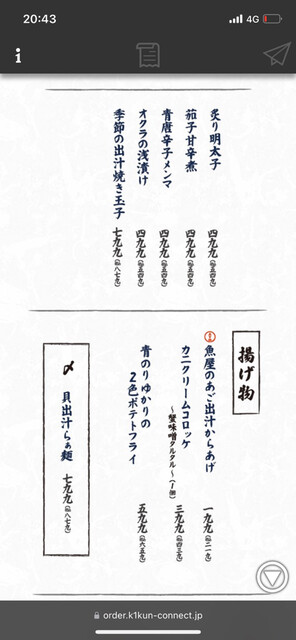 20:43
4G
i
炙り明太子 四九九(込五四九)
茄子甘辛煮 四九九(込五四九)
青唐辛子メンマ 四九九(込五四九)
オクラの浅漬け 四九九(込五四九)
季節の出汁焼き玉子 七九九(込八七九)
揚げ物
魚屋のあご出汁からあげ 一九九(込二一九)
カニクリームコロッケ
〜蟹味噌タルタル〜(1個) 三九九(込四三九)
青のりゆかりの
2色ポテトフライ 五九九(込六五九)
〆 貝出汁らぁ麺 七九九(込八七九)
order.k1kun-connect.jp